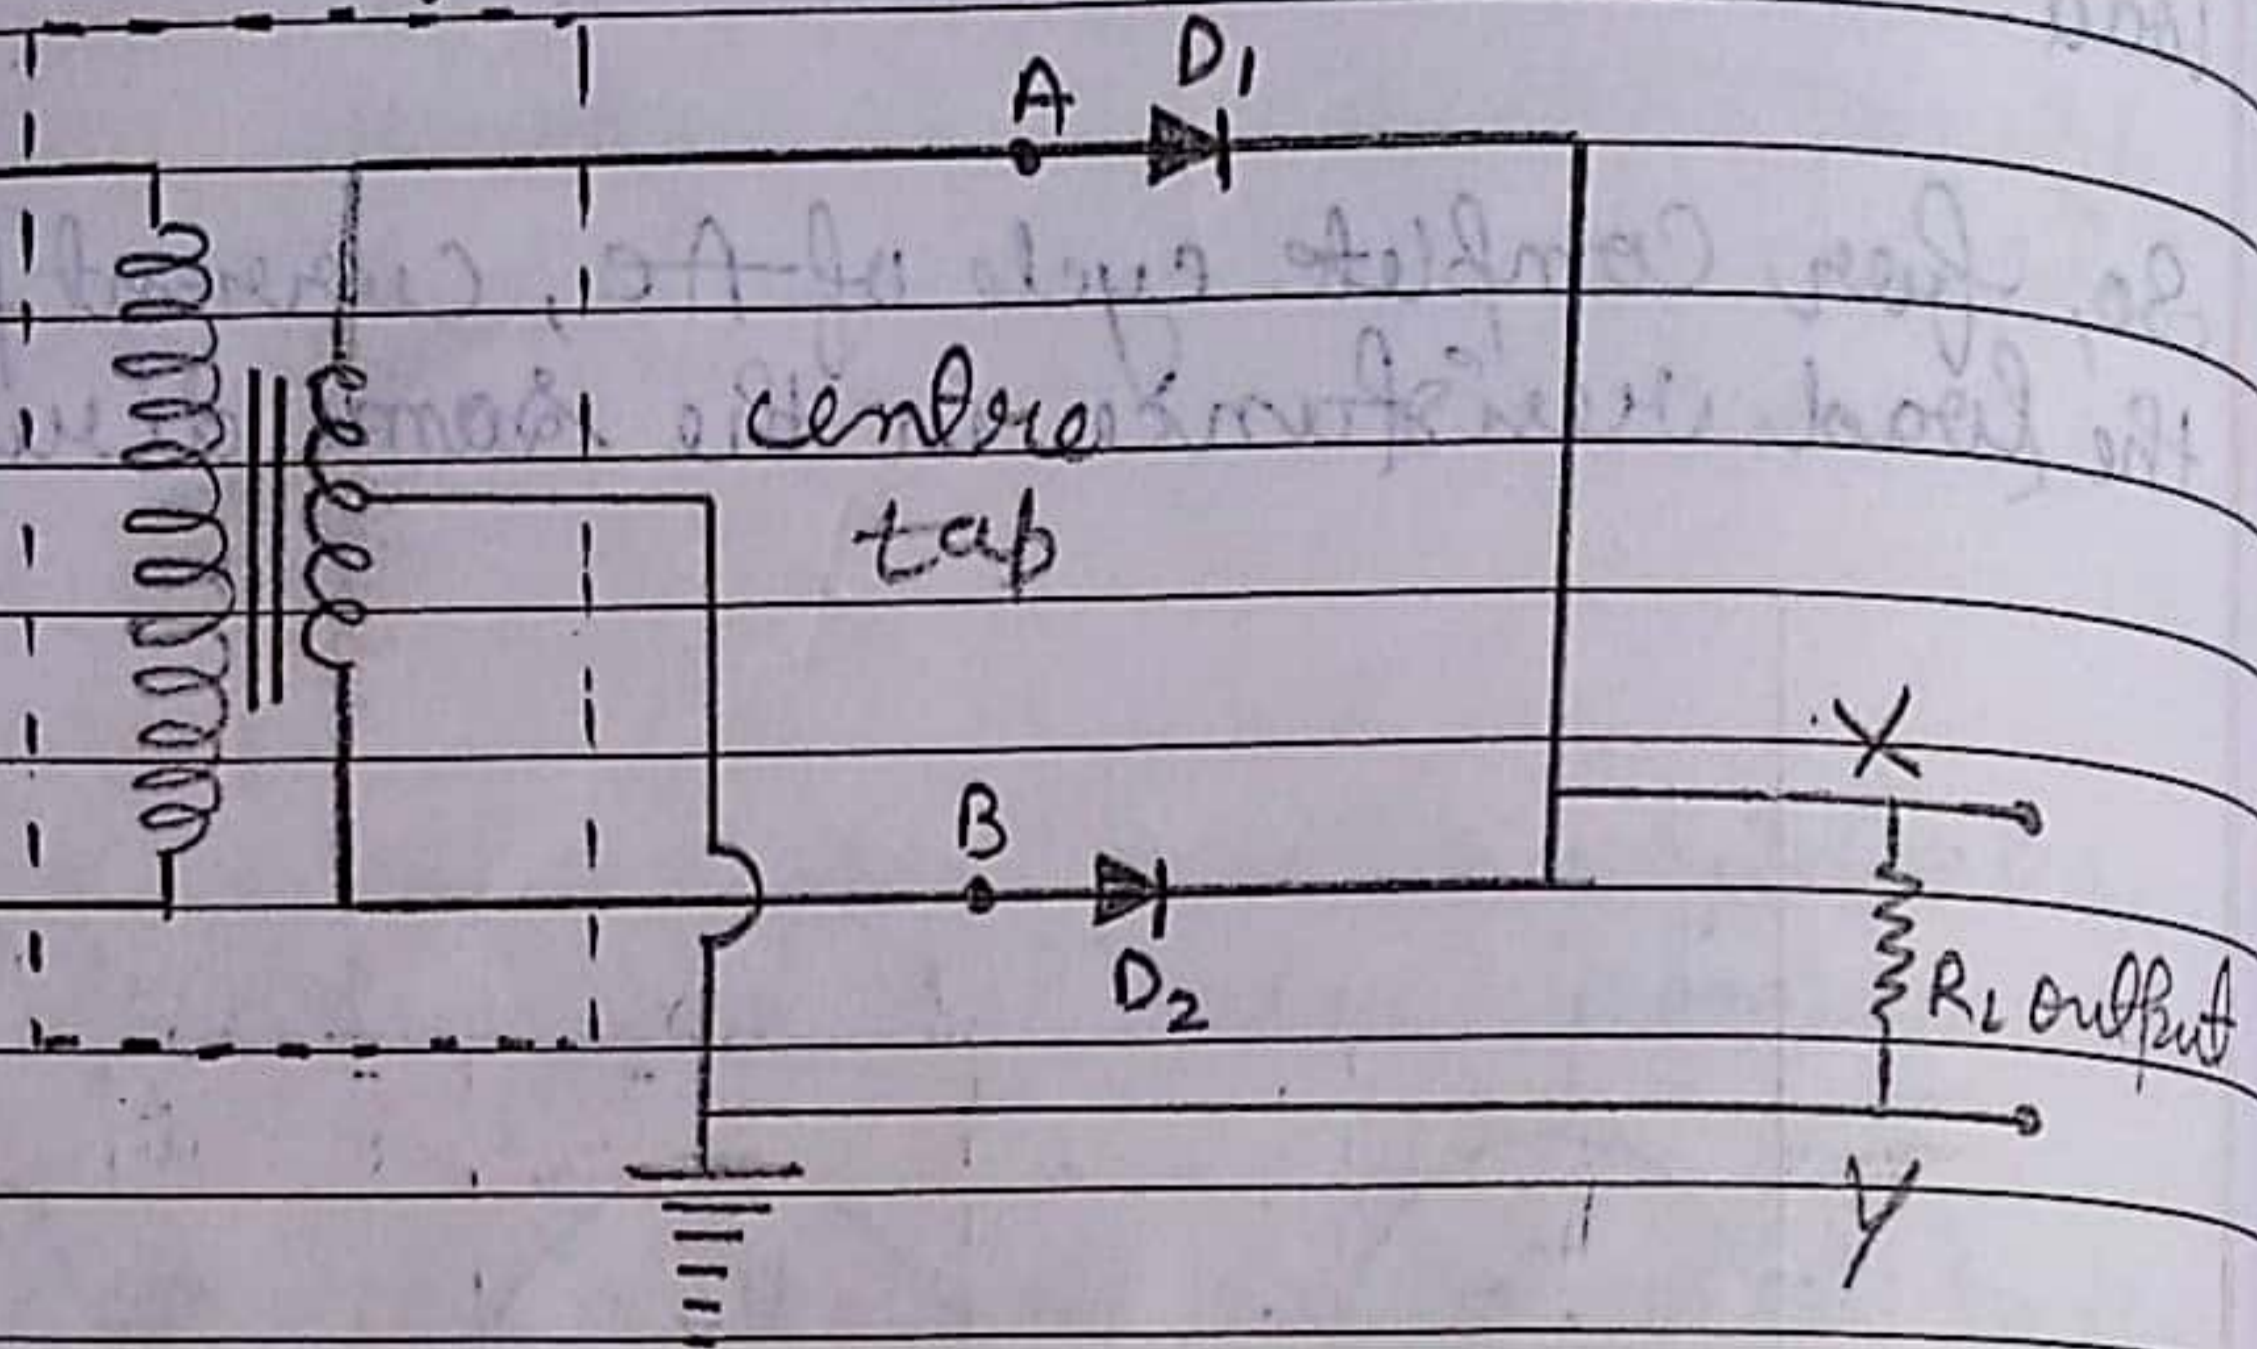 A
D1
centre
tap
B
D2
X
RL output
Y